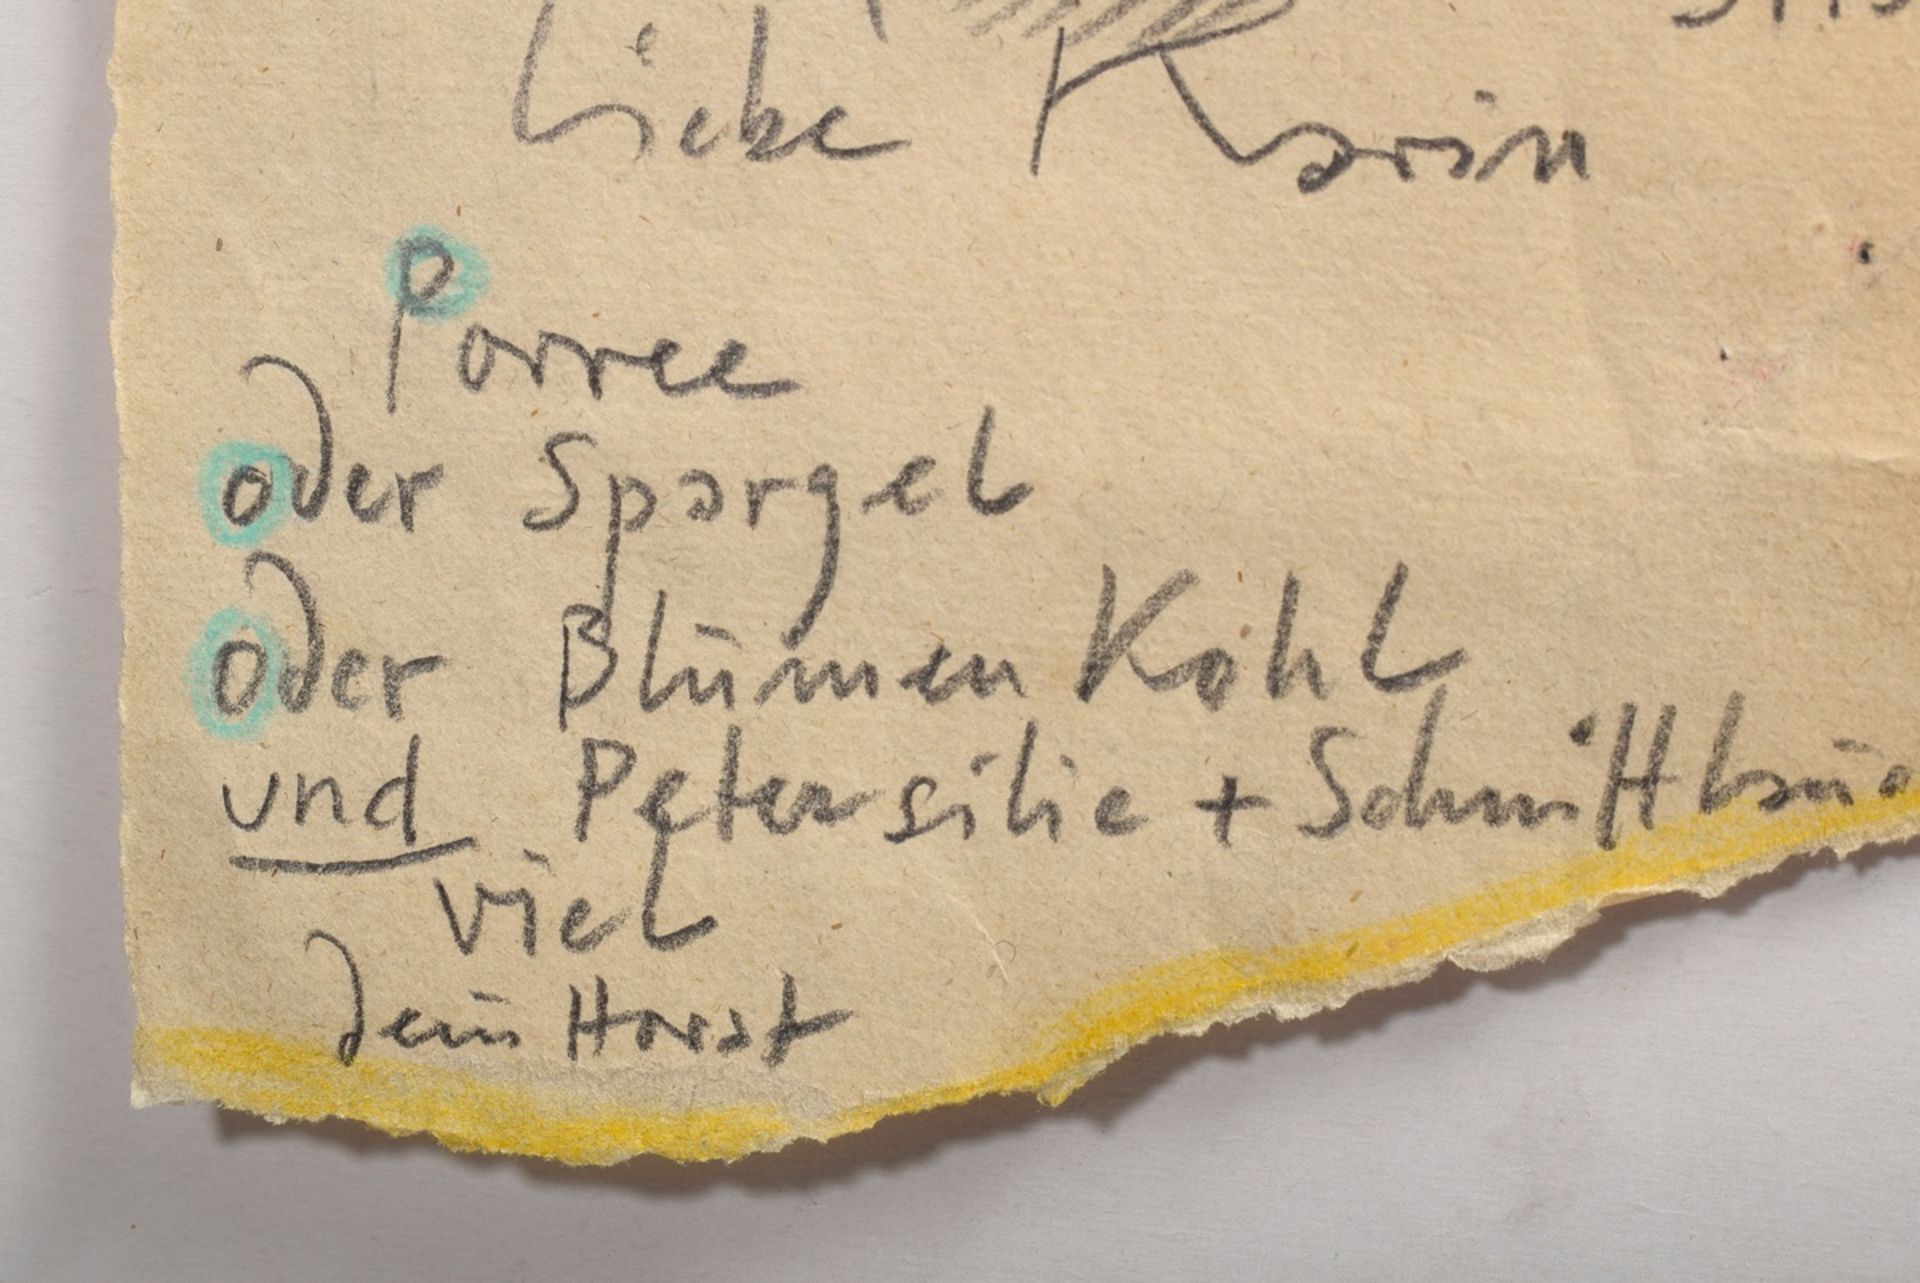 Liebe Karin
Porree
oder Spargel
oder Blumen Kohl
und Petersilie + Schnittlauc
viel
dein Horst